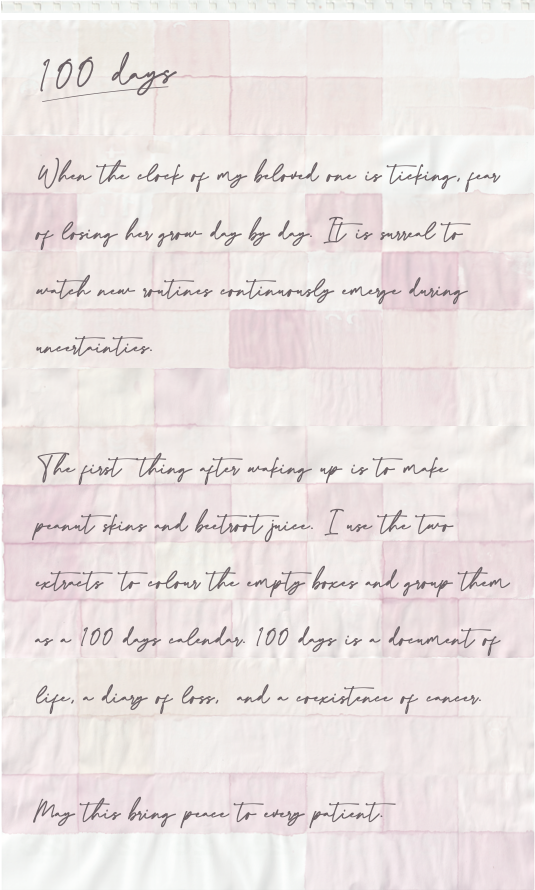 100 days
When the clock of my beloved one is ticking, fear
of losing her grow day by day. It is surreal to
watch new routines continuously emerge during
uncertainties.
The first thing after waking up is to make
peanut skins and beetroot juice. I use the two
extracts to colour the empty boxes and group them
as a 100 days calendar. 100 days is a document of
life, a diary of loss, and a coexistence of cancer.
May this bring peace to every patient.